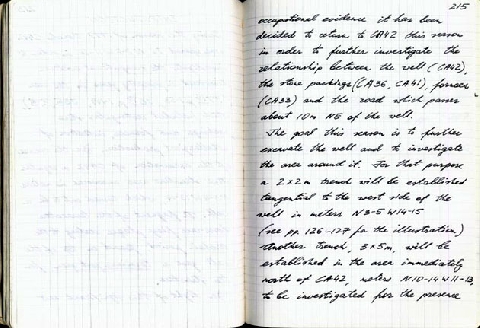 215
occupational evidence it has been
decided to return to CA42 this season
in order to further investigate the
relationship between the well (CA42),
the stone packings (CA36, CA41), furnace
(CA33) and the road which passes
about 10 m NE of the well.
The goal this season is to further
excavate the well and to investigate
the area around it. For that purpose
a 2 x 2 m trench will be established
tangential to the west side of the
well in meters N3-5 W14-15
(see pp. 126-127 for the illustration.)
Another trench, 5 x 5 m, will be
established in the area immediately
north of CA42, meters N10-14 W11-13,
to be investigated for the presence